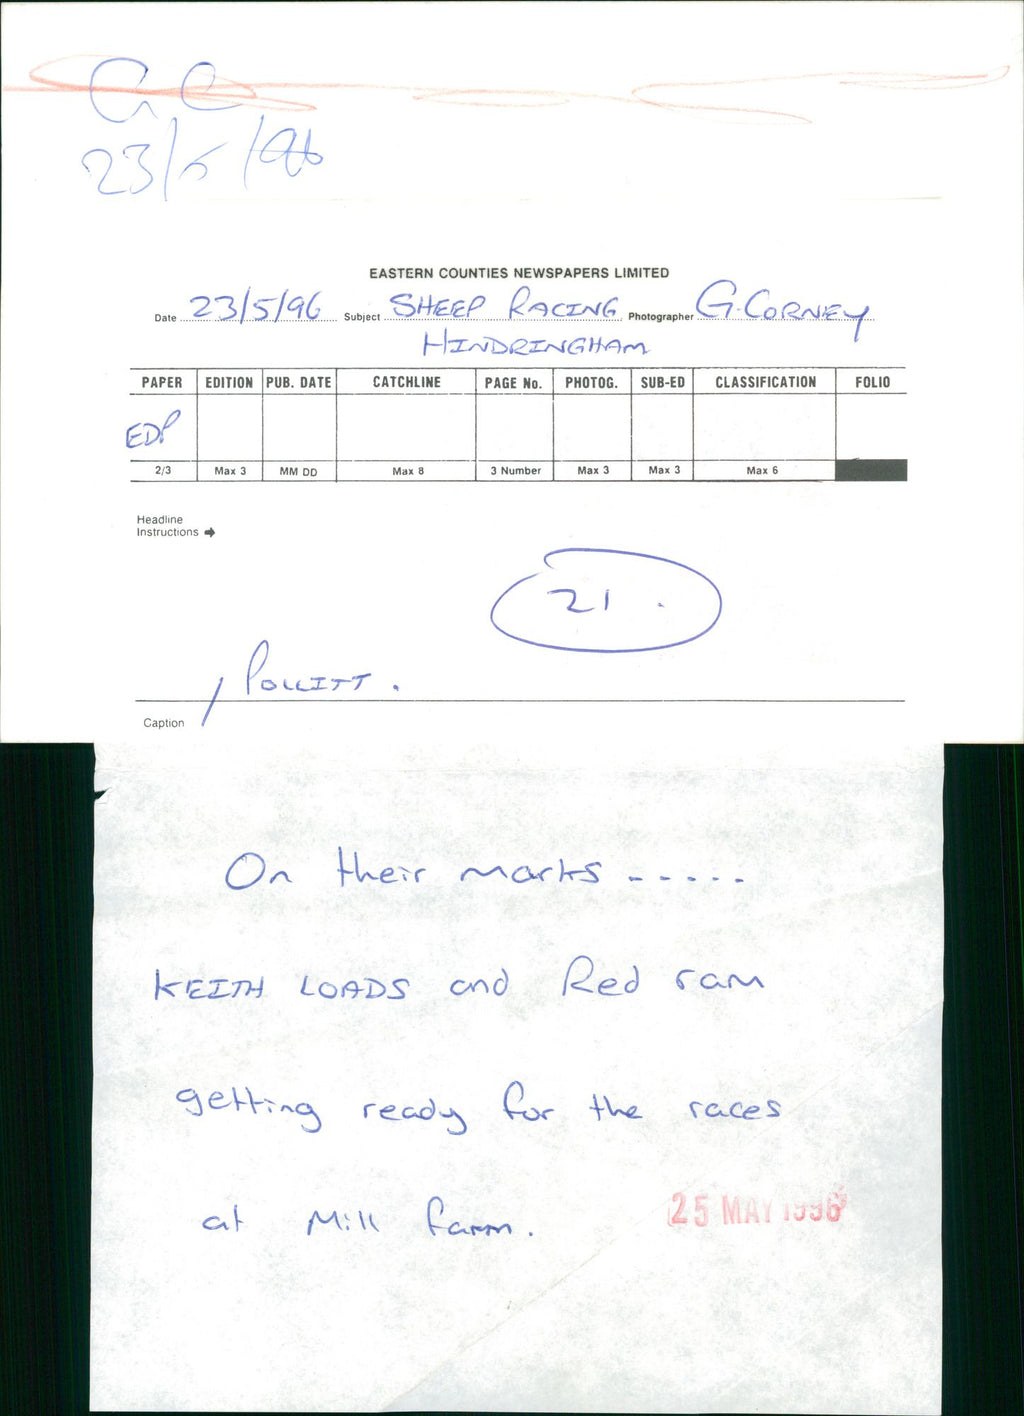 GC
23/5/96
EASTERN COUNTIES NEWSPAPERS LIMITED
Date 23/5/96 Subject SHEEP RACING Photographer G. CORNEY
HINDRINGHAM
PAPER EDITION PUB. DATE CATCHLINE PAGE No. PHOTOG. SUB-ED CLASSIFICATION FOLIO
EDP
2/3 Max 3 MM DD Max 8 3 Number Max 3 Max 3 Max 6
Headline
Instructions →
21.
/ POLLITT.
Caption
On their marks .....
KEITH LOADS and Red ram
getting ready for the races
at Mill Farm.
25 MAY 1996